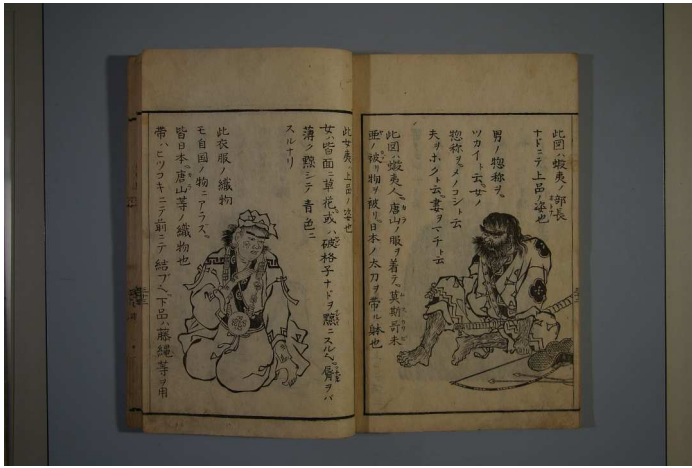 此図ハ蝦夷ノ部長
ナドニテ上品ノ姿也
男ノ惣称ヲ
ツカイト云女ノ
惣称ヲメノコシト云
夫ヲホクト云妻ヲマチト云
此図ハ蝦夷人唐山ノ服ヲ着テ莫斯哥未
亜ノ被リ物ヲ被リ日本ノ太刀ヲ帯ル躰也
此女夷上品ノ姿也
女ハ皆面ニ草花或ハ破格子ナドヲ黥ニスル脣ヲバ
薄ク黥シテ青色ニ
スルナリ
此衣服ノ織物
モ自国ノ物ニアラズ
皆日本唐山等ノ織物也
帯ハヒツコキニテ前ニテ結ブ下品ハ藤縄等ヲ用